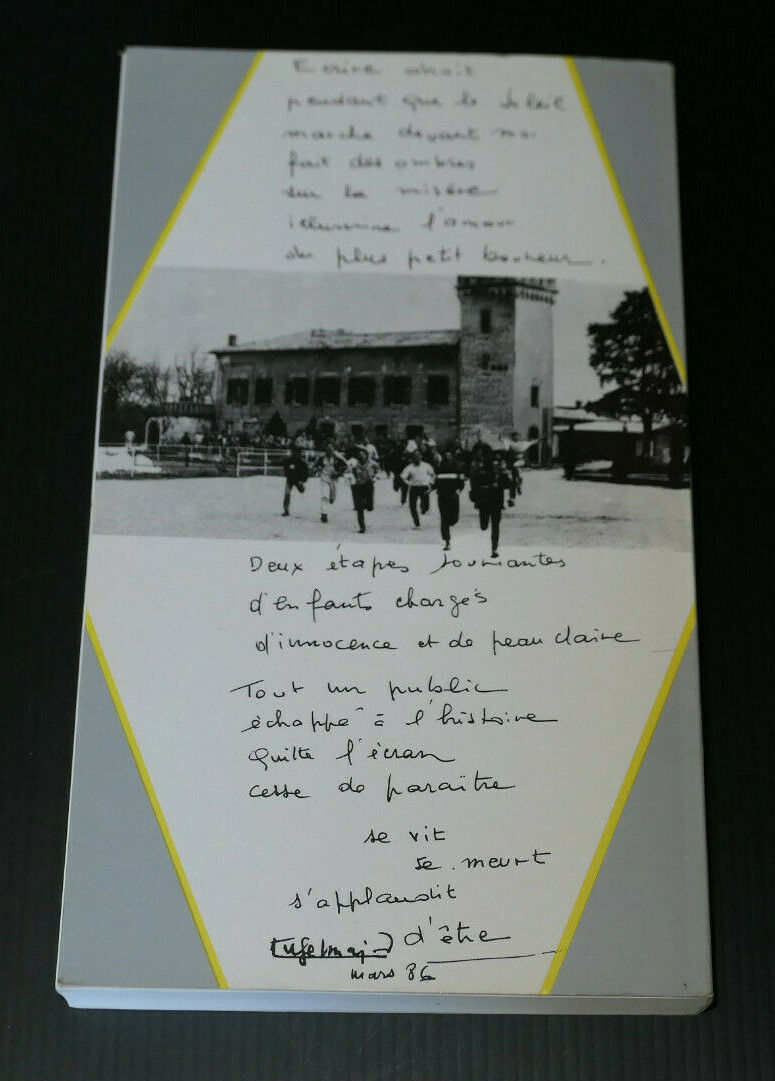 Ecrire
pendant que le soleil
marche devant
fait des ombres
sur la misère
illumine l'amour
du plus petit bonheur.
Deux étapes souriantes
d'enfants chargés
d'innocence et de peau claire
Tout un public
échappé à l'histoire
quitte l'écran
cesse de paraître
se vit
se meurt
s'applaudit
d'être
mars 86